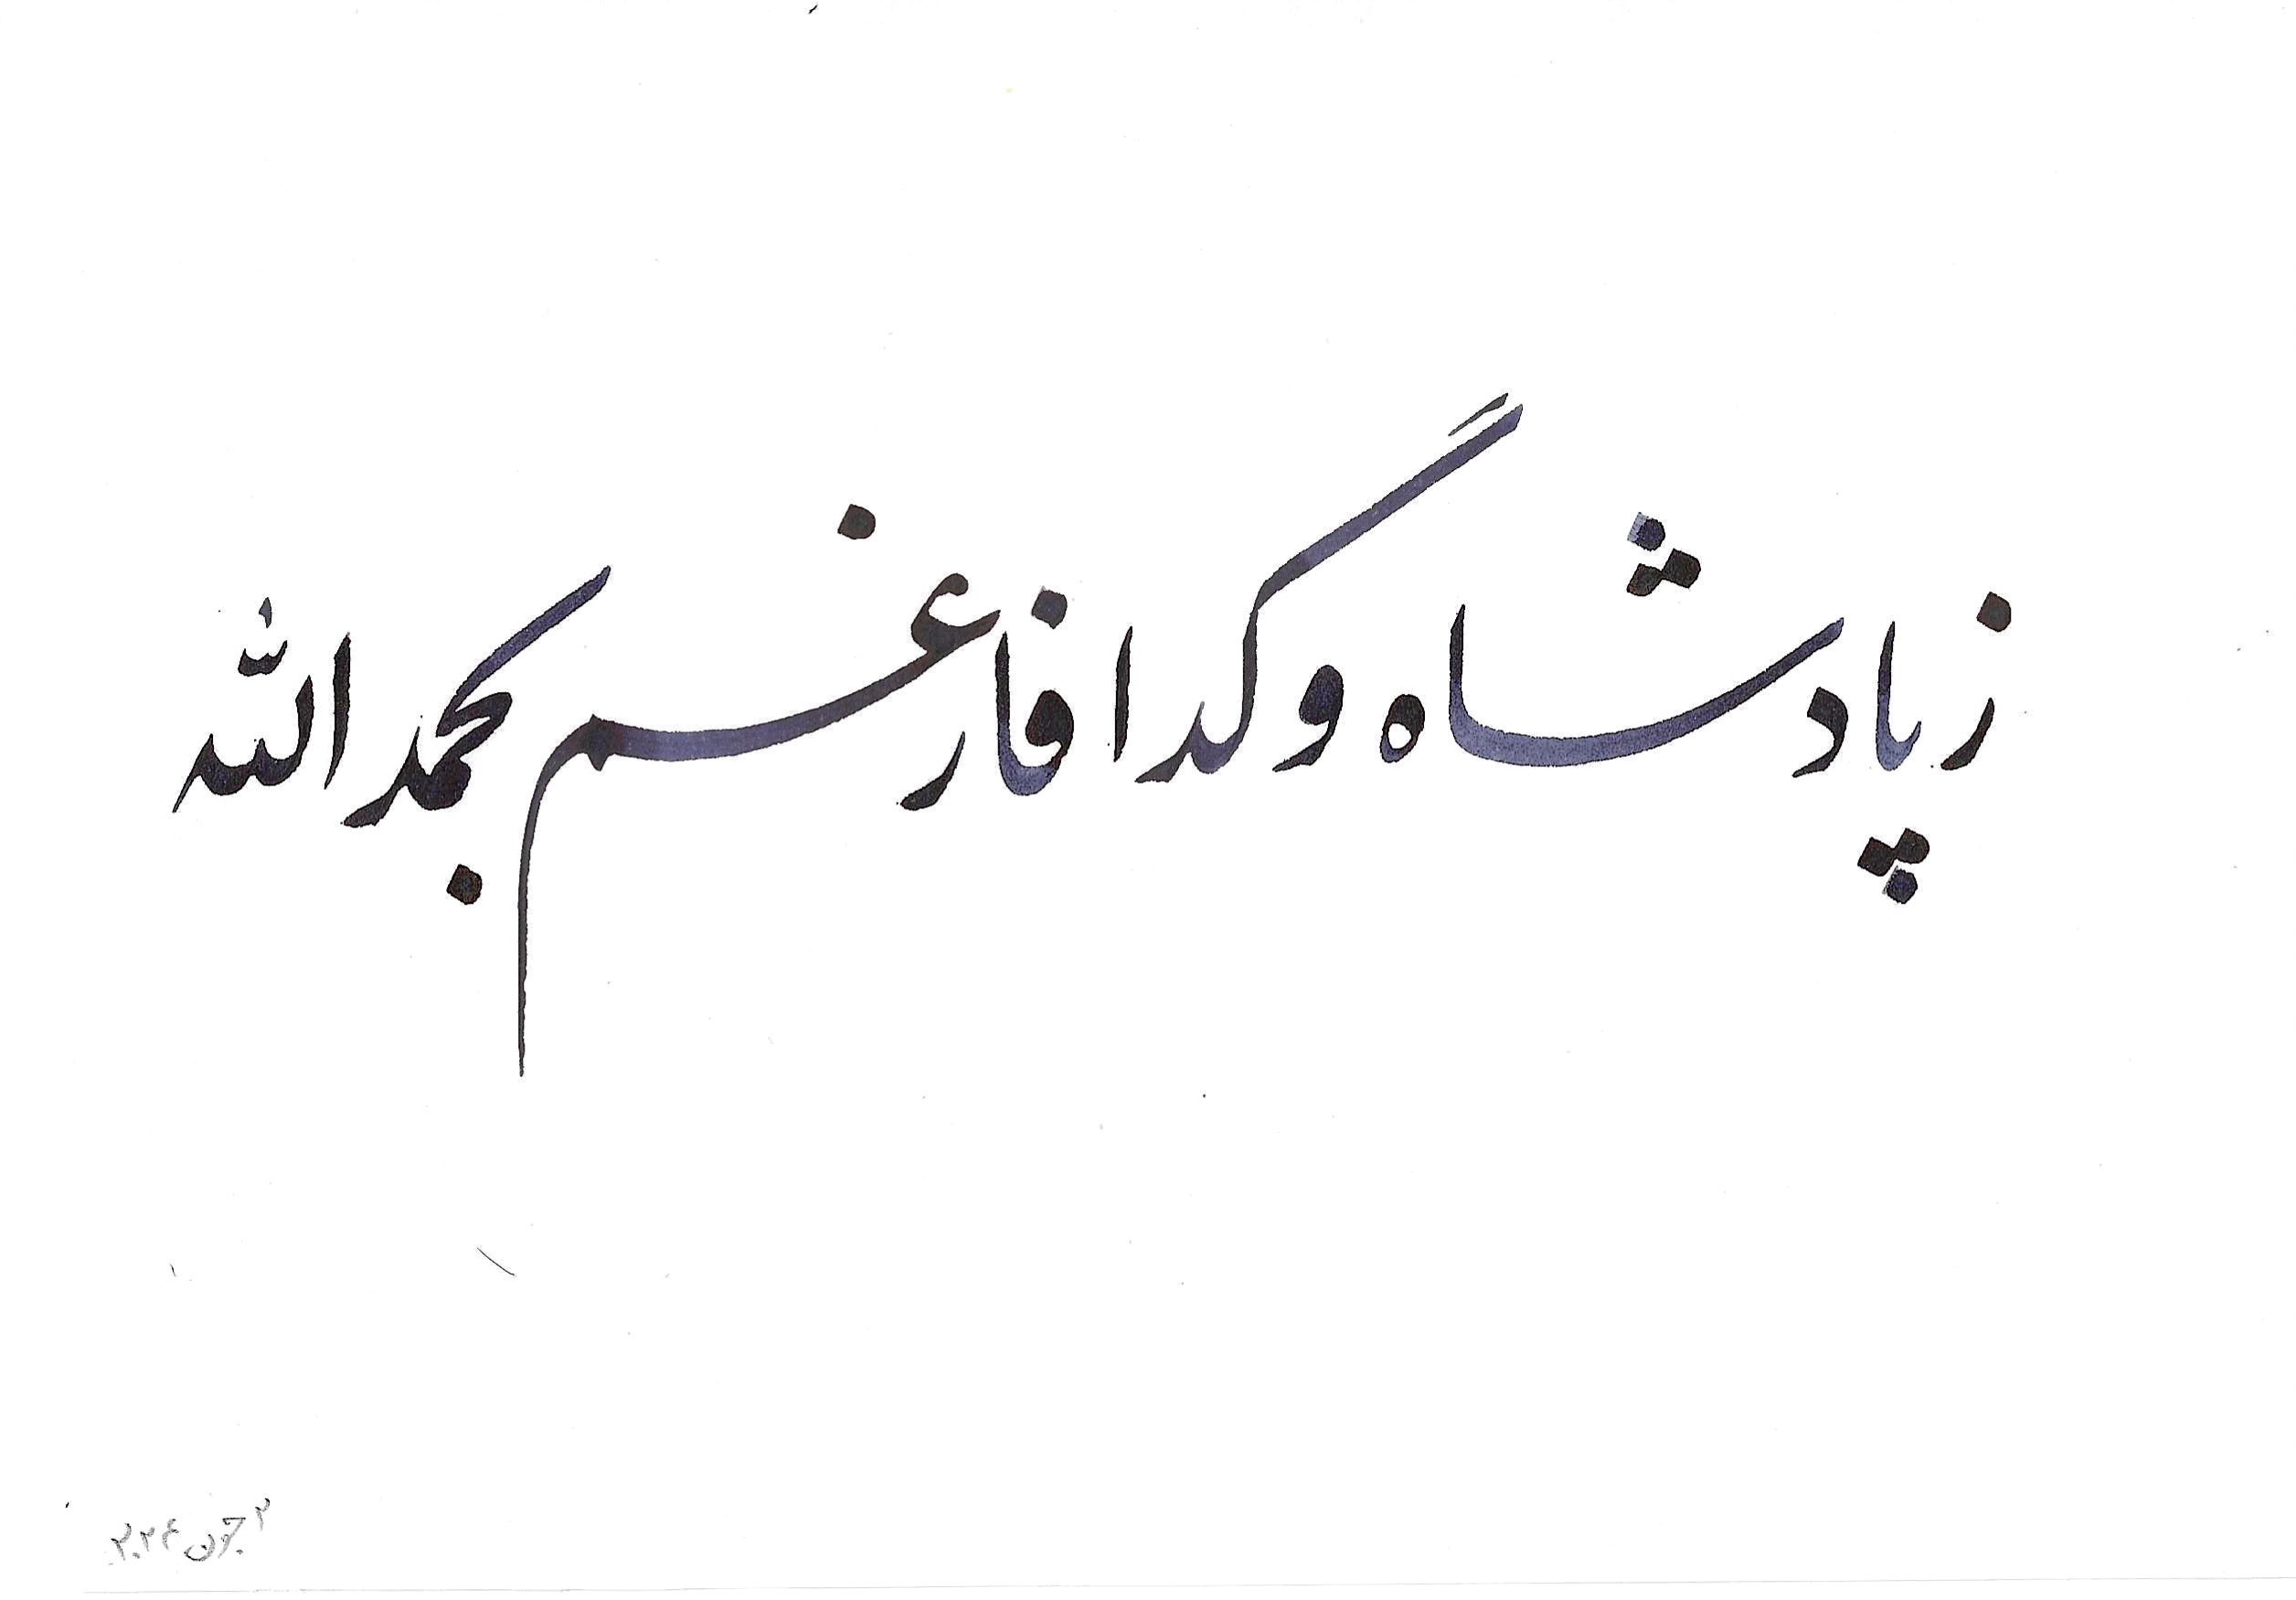 زپادشاه و گدا فارغم بحمد الله
۲ جون ۲۰۲۴